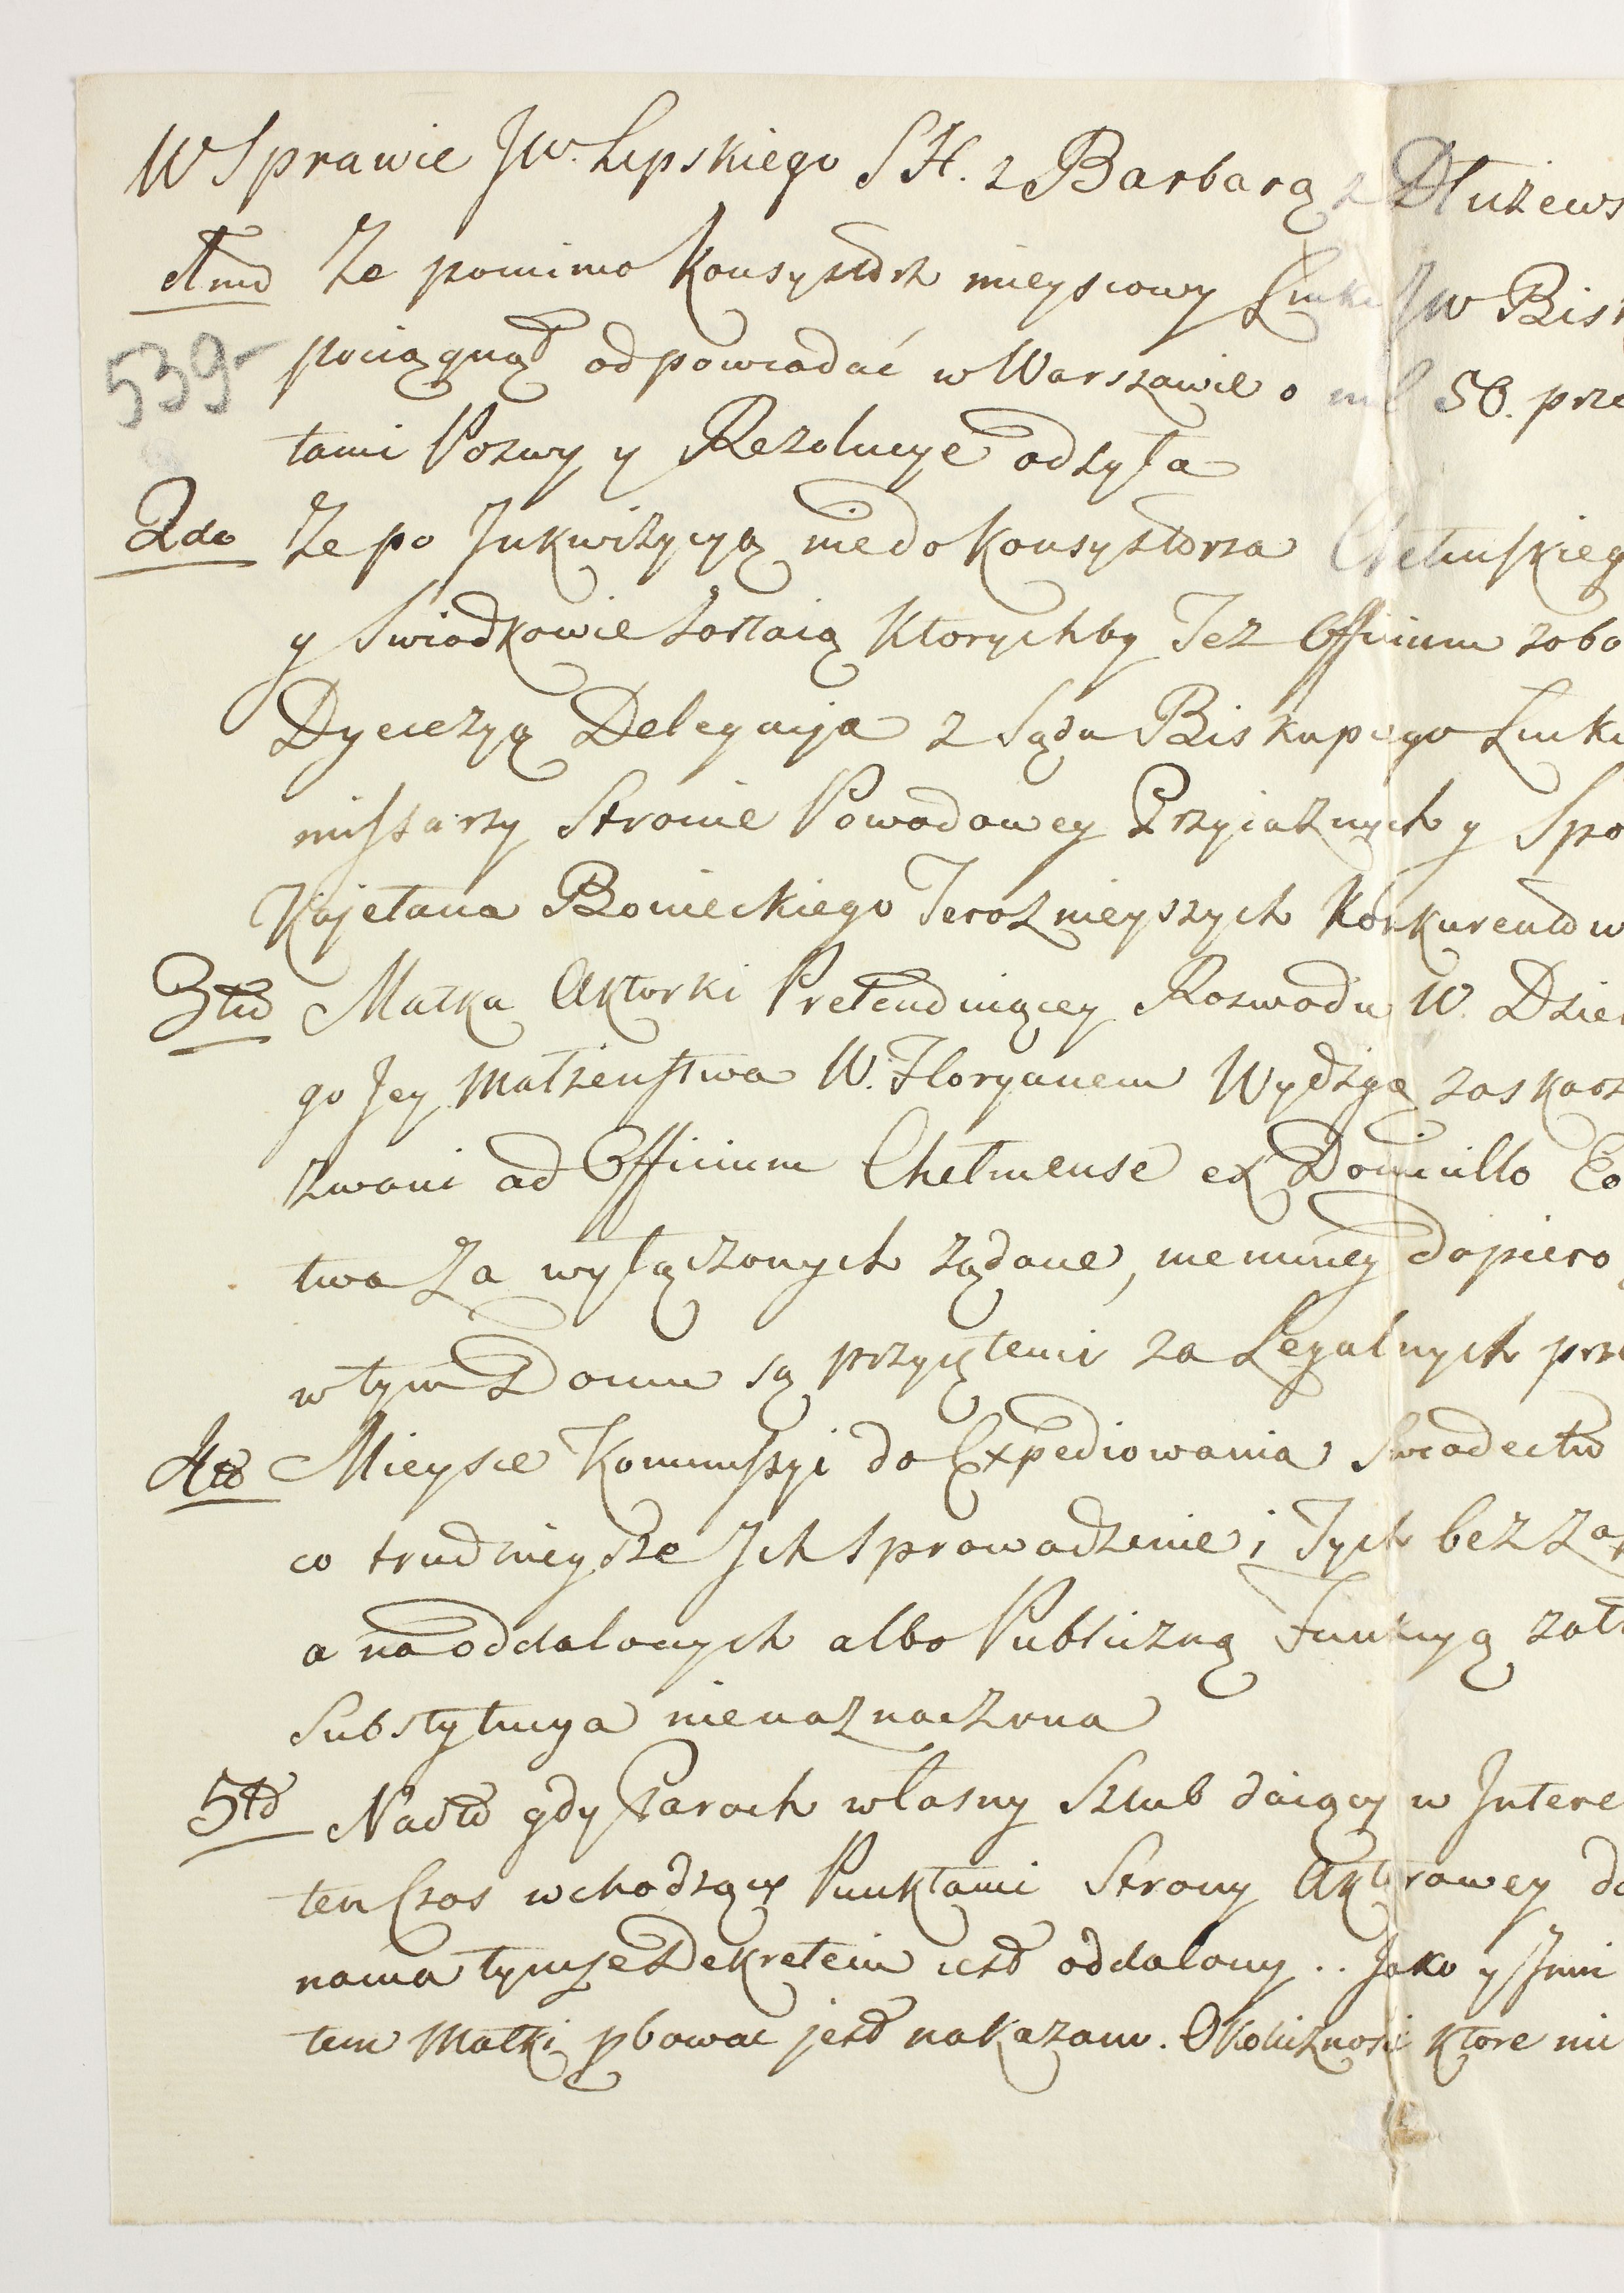 W Sprawie JW. Lipskiego S H. z Barbarą z Dłużews
1mo Ze pomimo Konsystorz mieyscowy Łucki JW Bisk
539-
pociągnął odpowiadać w Warszawie o mil 50. prze
tami Pozwy y Rezolucye odsyła
2do Ze po Inkwizycyą nie do Konsystorza Chełmskieg
y Swiadkowie zostaią Ktorychby Tez Officium zobo
Dyecezyą Delegacya z Sądu Biskupiego Łucki
missarzy Stronie Powodowey Przyiaznych y Spo
Kajetana Bonieckiego Teraznieyszych Konkurentow
3tio Matka Aktorki Pretenduiącey Rozwodu W. Dzier
go Jey Małzenstwa W. Floryanem Wydzgą zaskarz
zwani ad Officium Chełmense ex Domicillo Eo
twa Za wyłączonych ządane, niemniey dopiero
w tym Domu są przyiętemi za Legalnych prze
4to Mieysce Kommissyi do Expediowania Swiadectw
co trudnieysze Ich Sprowadzenie i Tych bez Za
a na oddalonych albo Publiczną Funkcyą zat
Substytucya nienaznaczona
5to Nadto gdy Paroch własny Szlub daiący w Intere
ten Czas wchodzący Punktami Strony Aktorowey do
nania tymze Dekretem iest oddalony .. Jako y Inni
tem Matki probowac jest nakazano. Okolicznosci Ktore nie